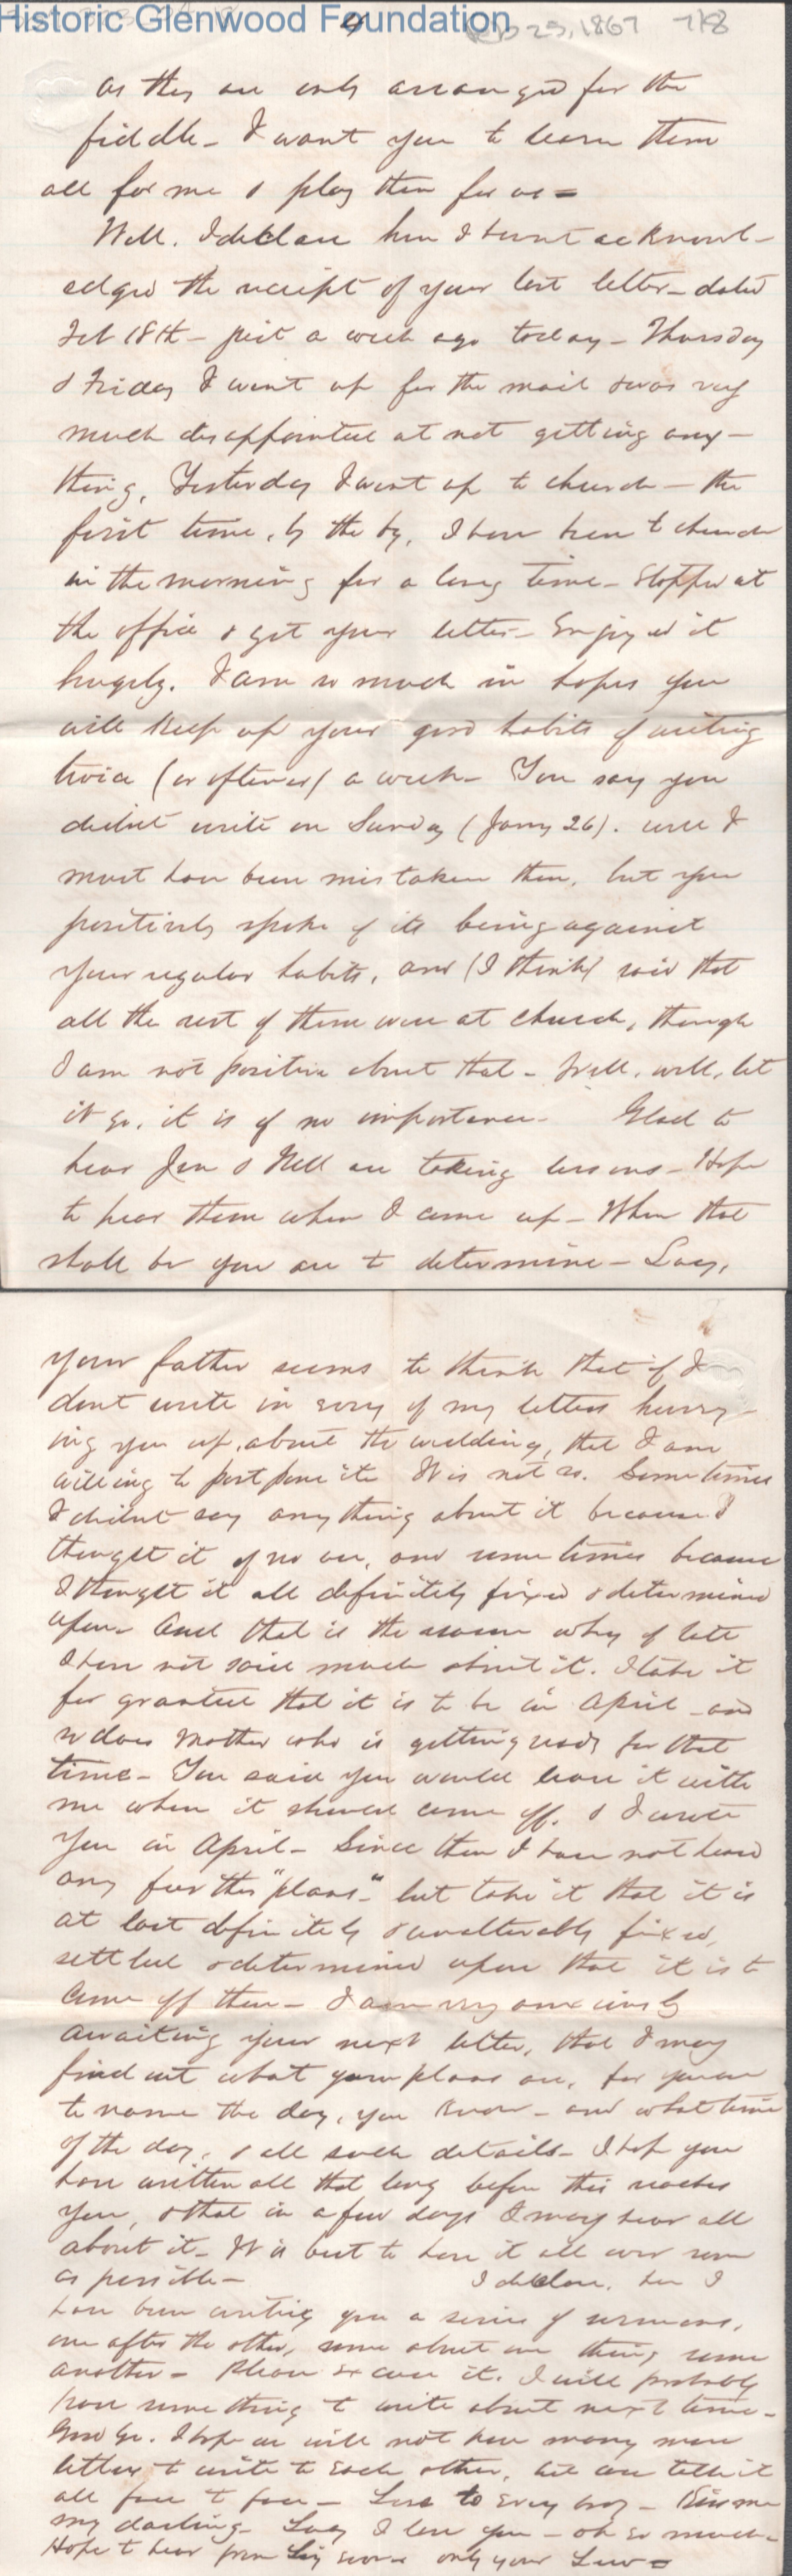 Historic Glenwood Foundation
4
Feb 25, 1867 7/8
as they are only arranged for the
fiddle - I want you to learn them
all for me & play them for us =
Well. I declare here I havnt acknowl-
edged the receipt of your last letter - dated
Feb 18th - just a week ago today - Thursday
& Friday I went up for the mail & was very
much disappointed at not getting any-
thing. Yesterday I went up to church - the
first time, by the by, I have been to church
in the morning for a long time - Stopped at
the office & got your letter - Enjoyed it
hugely. I am so much in hopes you
will keep up your good habits of writing
twice (or oftener) a week - You say you
didnt write on Sunday (Jany 26). well I
must have been mistaken then, but you
positively spoke of its being against
your regular habits, and (I think) said that
all the rest of them were at church, though
I am not positive about that - Well, well, let
it go, it is of no importance - Glad to
hear Jen & Nell are taking lessons - Hope
to hear them when I come up - When that
shall be you are to determine - Lucy,
your father seems to think that if I
dont write in every of my letters hurry-
ing you up, about the wedding, that I am
willing to postpone it. It is not so. Sometimes
I didnt say anything about it because I
thought it of no use, and sometimes because
I thought it all definitely fixed & determined
upon - And that is the reason why of late
I have not said much about it. I take it
for granted that it is to be in April - and
so does Mother who is getting ready for that
time - You said you would leave it with
me when it should come off. & I wrote
you in April - Since then I have not heard
any further "plans" - but take it that it is
at last definitely & unalterably fixed,
settled & determined upon that it is to
come off then - I am very anxiously
awaiting your next letter, that I may
find out what your plans are, for you are
to name the day, you know - and what time
of the day, & all such details - I hope you
have written all that long before this reaches
you, & that in a few days I may hear all
about it - It is best to have it all over soon
as possible - I declare, here I
have been writing you a series of sermons,
one after the other, some about one thing some
another - Please excuse it. I will probably
have something to write about next time -
Good bye. I hope we will not have many more
letters to write to each other, but can tell it
all face to face - Love to every body - Kiss me
my darling - Lucy I love you - oh so much -
Hope to hear from you soon - only your